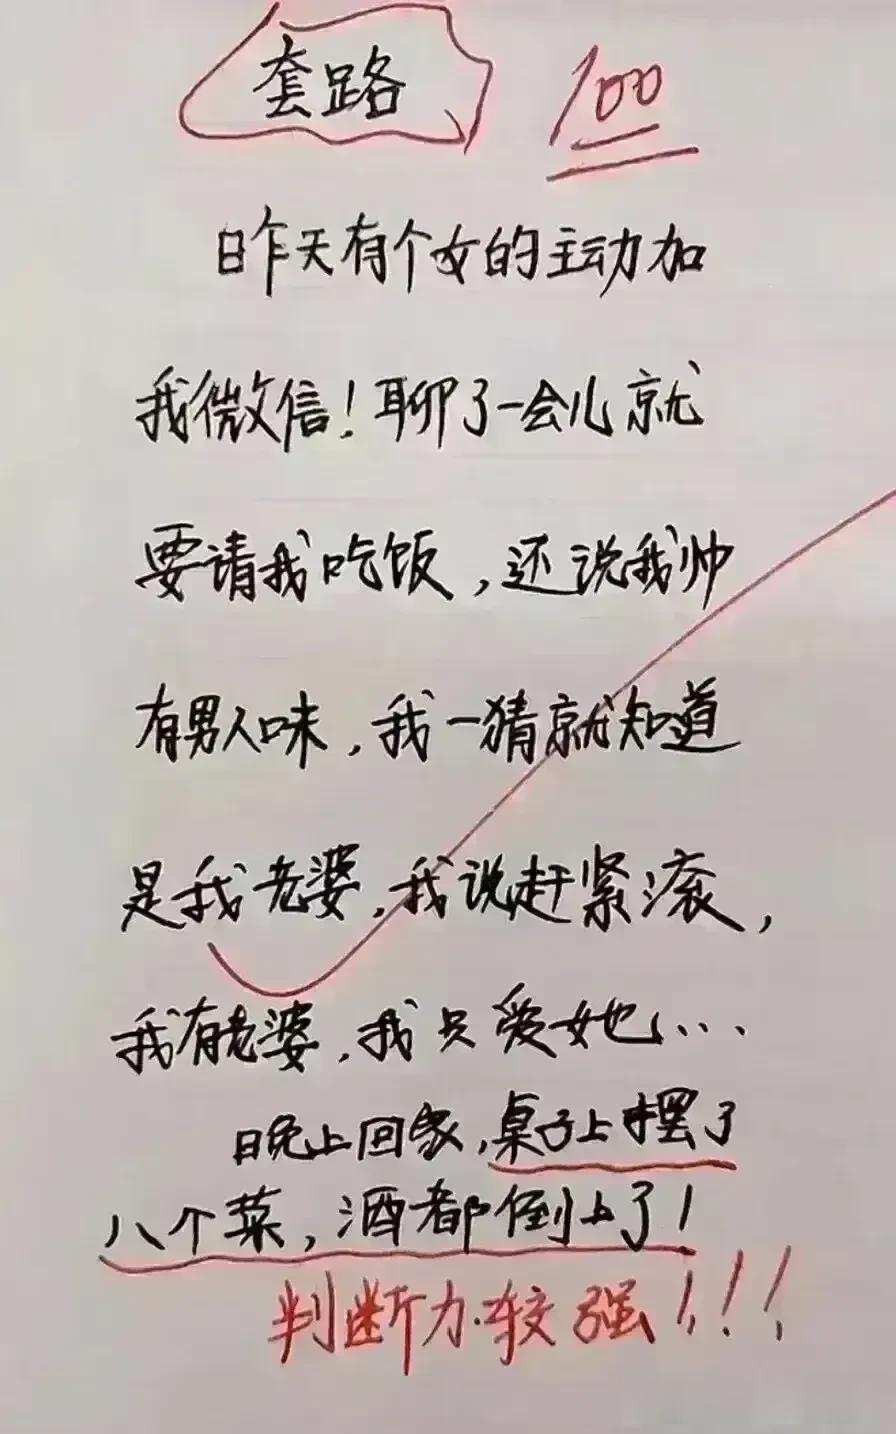 套路 100
昨天有个女的主动加
我微信！聊了一会儿就
要请我吃饭，还说我帅
有男人味，我一猜就知道
是我老婆，我说赶紧滚，
我有老婆，我只爱她…
晚上回家，桌子上摆了
八个菜，酒都倒上了！
判断力较强！！！